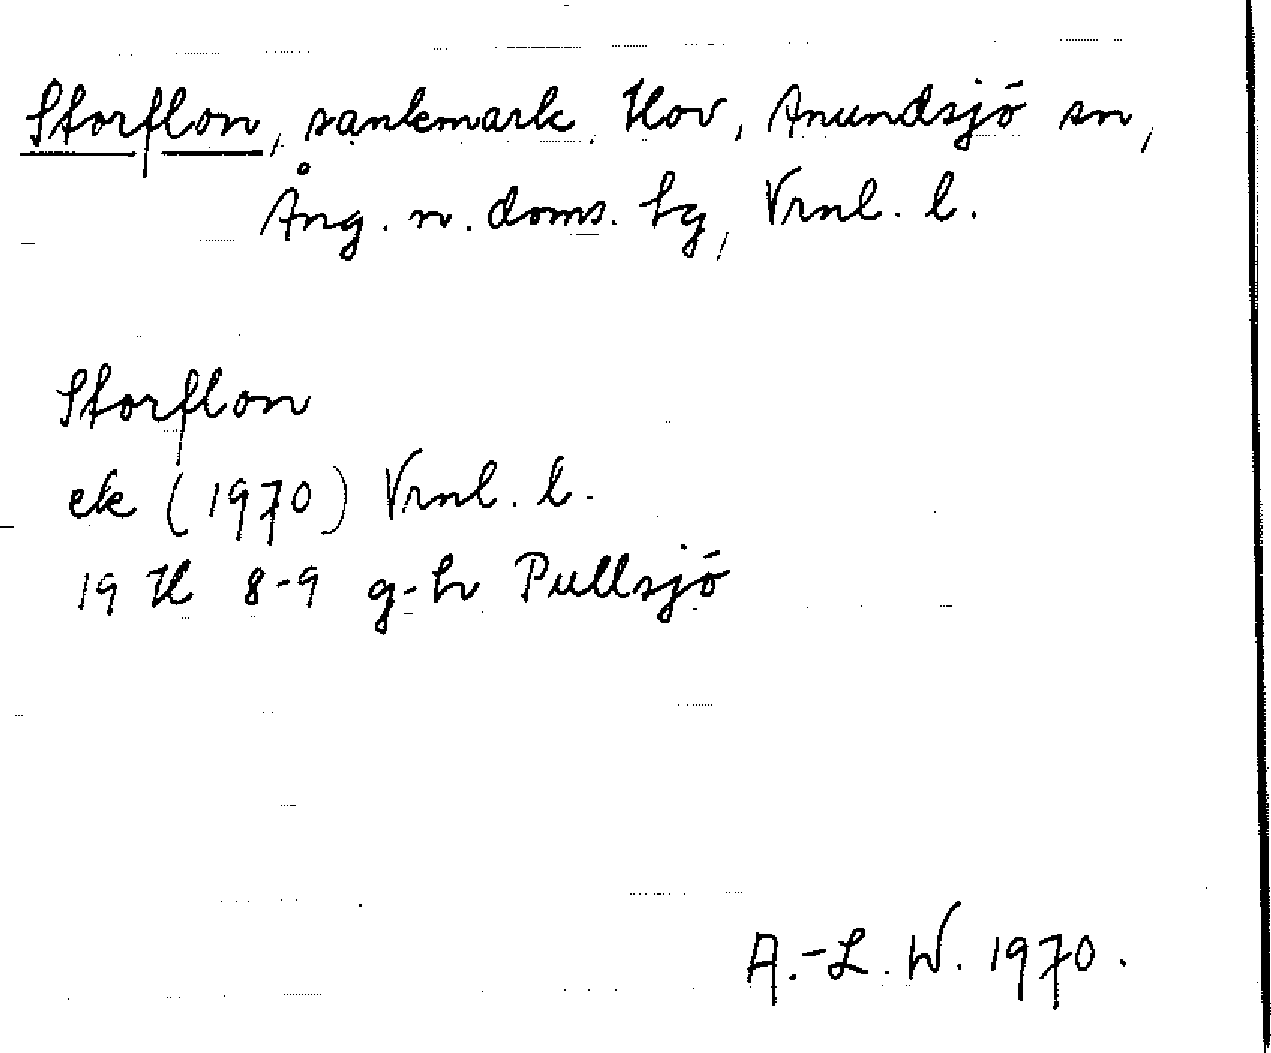 Storflon, sankmark, Hov, Anundsjö sn,
Ång. n. doms. hg, Vrnl. l.
Storflon
ek (1970) Vrnl. l.
19 H 8-9 g-h Pullsjö
A.-L. W. 1970.